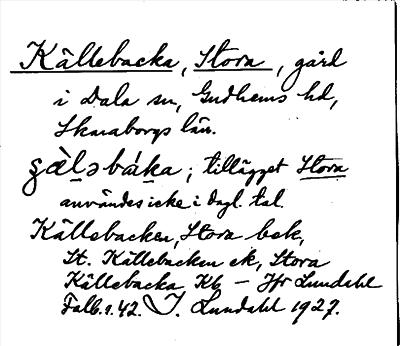 Källebacka, Stora, gård
i Dala sn, Gudhems hd,
Skaraborgs län.
ʂὰlǝbáka; tillägget Stora
användes icke i dagl. tal.
Källebacken, Stora bek,
St. Källebacken ek, Stora
Källebacka Kb – Jfr Lundahl
Falb. s. 42. I. Lundahl 1927.